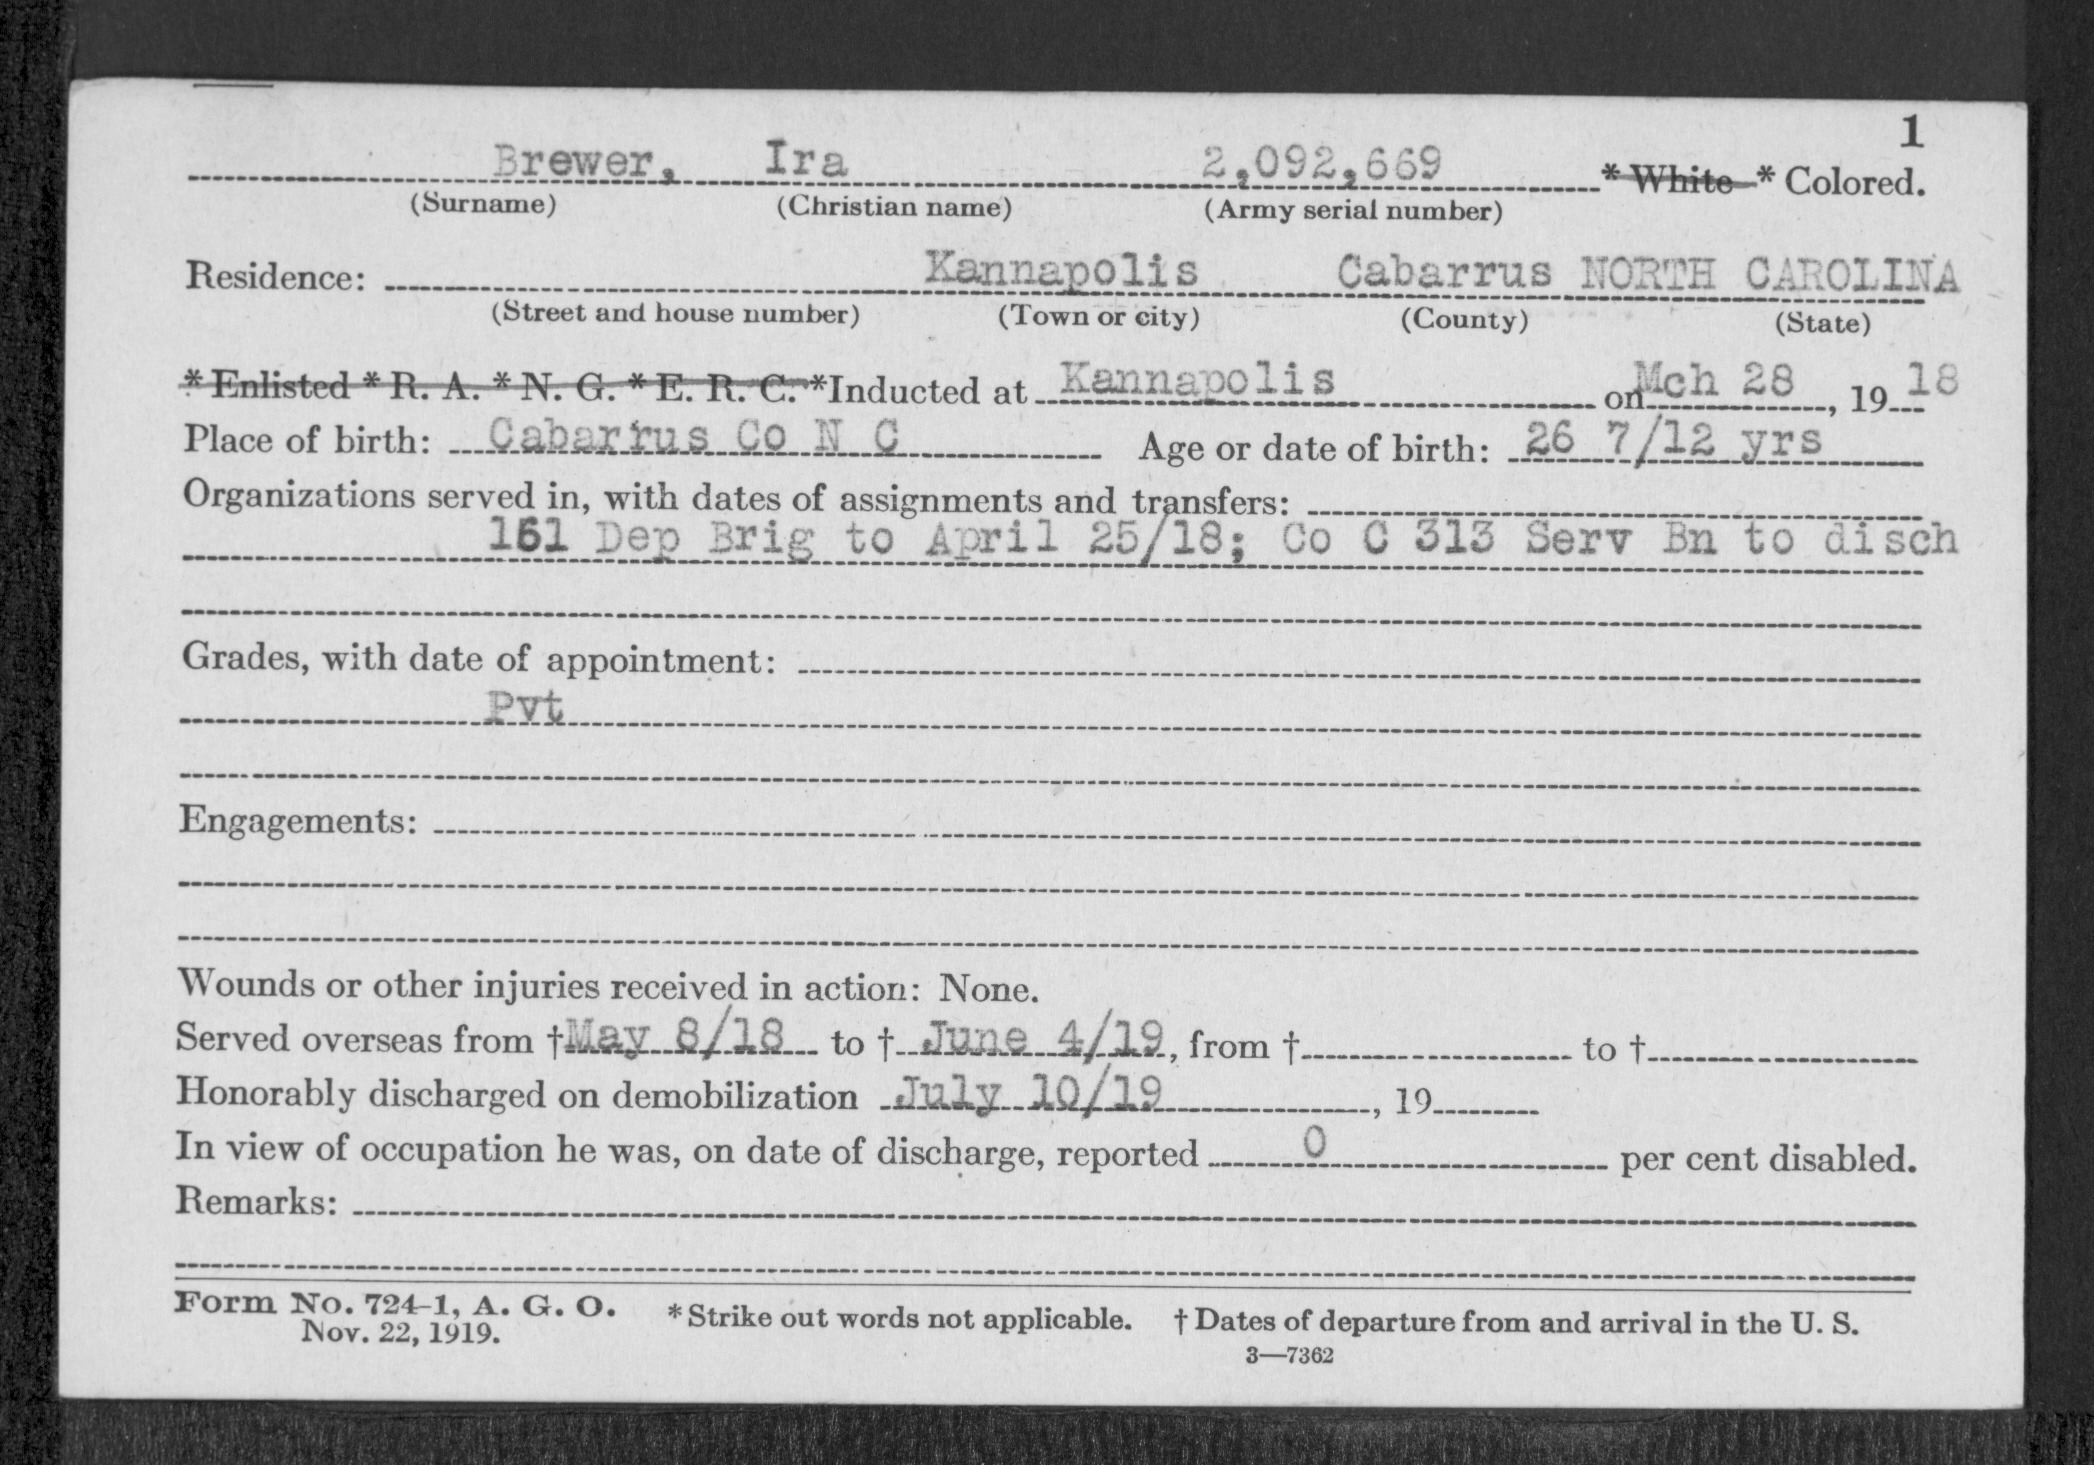 1
Brewer, Ira 2,092,669 * White * Colored.
(Surname) (Christian name) (Army serial number)
Residence: Kannapolis Cabarrus NORTH CAROLINA
(Street and house number) (Town or city) (County) (State)
* Enlisted * R. A. * N. G. * E. R. C. * Inducted at Kannapolis on Mch 28, 19 18
Place of birth: Cabarrus Co N C Age or date of birth: 26 7/12 yrs
Organizations served in, with dates of assignments and transfers:
161 Dep Brig to April 25/18; Co C 313 Serv Bn to disch
Grades, with date of appointment:
Pvt
Engagements:
Wounds or other injuries received in action: None.
Served overseas from † May 8/18 to † June 4/19, from † to †
Honorably discharged on demobilization July 10/19, 19
In view of occupation he was, on date of discharge, reported 0 per cent disabled.
Remarks:
Form No. 724-1, A. G. O. * Strike out words not applicable. † Dates of departure from and arrival in the U. S.
Nov. 22, 1919.
3—7362